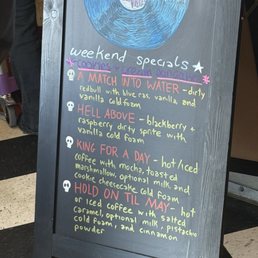 weekend specials
A MATCH INTO WATER - dirty
redbull with blue ras, vanilla, and
vanilla cold foam
HELL ABOVE - blackberry +
raspberry dirty sprite with
vanilla cold foam
KING FOR A DAY - hot/iced
coffee with mocha, toasted
marshmallow, optional milk, and
cookie cheesecake cold foam
HOLD ON TIL MAY - hot
or iced coffee with salted
caramel, optional milk, pistachio
cold foam, and cinnamon
powder